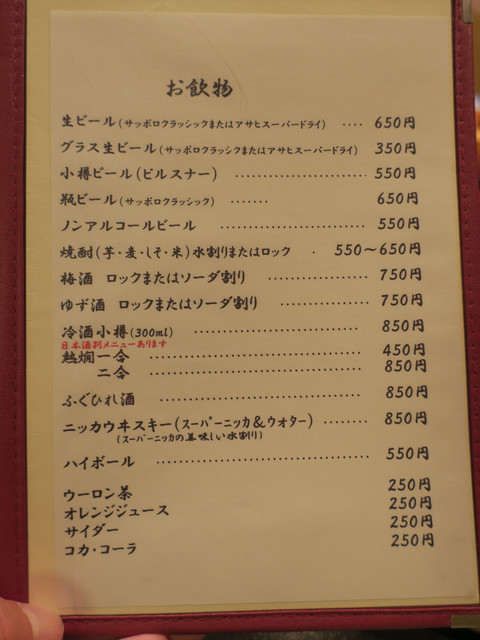 お飲物
生ビール(サッポロクラッシックまたはアサヒスーパードライ) ････ 650円
グラス生ビール(サッポロクラッシクまたはアサヒスーパードライ) 350円
小樽ビール(ピルスナー) ････････････････････ 550円
瓶ビール(サッポロクラッシック) ･･･････ 650円
ノンアルコールビール ･･････････････････････ 550円
焼酎(芋・麦・しそ・米)水割りまたはロック ･ 550～650円
梅酒 ロックまたはソーダ割り ･･････････････ 750円
ゆず酒 ロックまたはソーダ割り ････････････ 750円
冷酒小樽(300ml) ･･････････････････････････ 850円
日本酒別メニューあります
熱燗一合 ････････････････････････････････ 450円
二合 ････････････････････････････････ 850円
ふぐひれ酒 ････････････････････････････････ 850円
ニッカウヰスキー(スーパーニッカ&ウオター) ････････ 850円
(スーパーニッカの美味しい水割り)
ハイボール ･･････････････････････････････ 550円
ウーロン茶 250円
オレンジジュース 250円
サイダー 250円
コカ・コーラ 250円